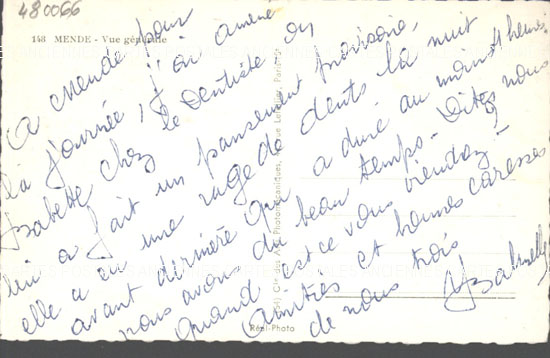 480066
148 MENDE - Vue générale
A Mende pour
la journée, j'ai amené
Babette chez le Dentiste on
lui a fait un pansement provisoire,
elle a eu une rage de dents la nuit
avant dernière qui a duré au moins 4 heures.
nous avons du beau temps - Dites nous
quand est ce vous viendez ?
Amitiés et bonnes caresses
de nous trois
Réal-Photo